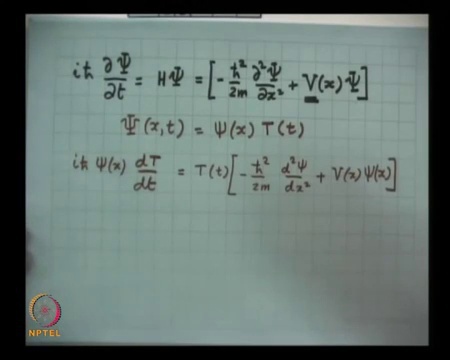 iħ ∂Ψ/∂t = HΨ = [- ħ²/2m ∂²Ψ/∂x² + V(x) Ψ]
Ψ(x,t) = ψ(x) T(t)
iħ ψ(x) dT/dt = T(t) [- ħ²/2m d²ψ/dx² + V(x) ψ(x)]
NPTEL